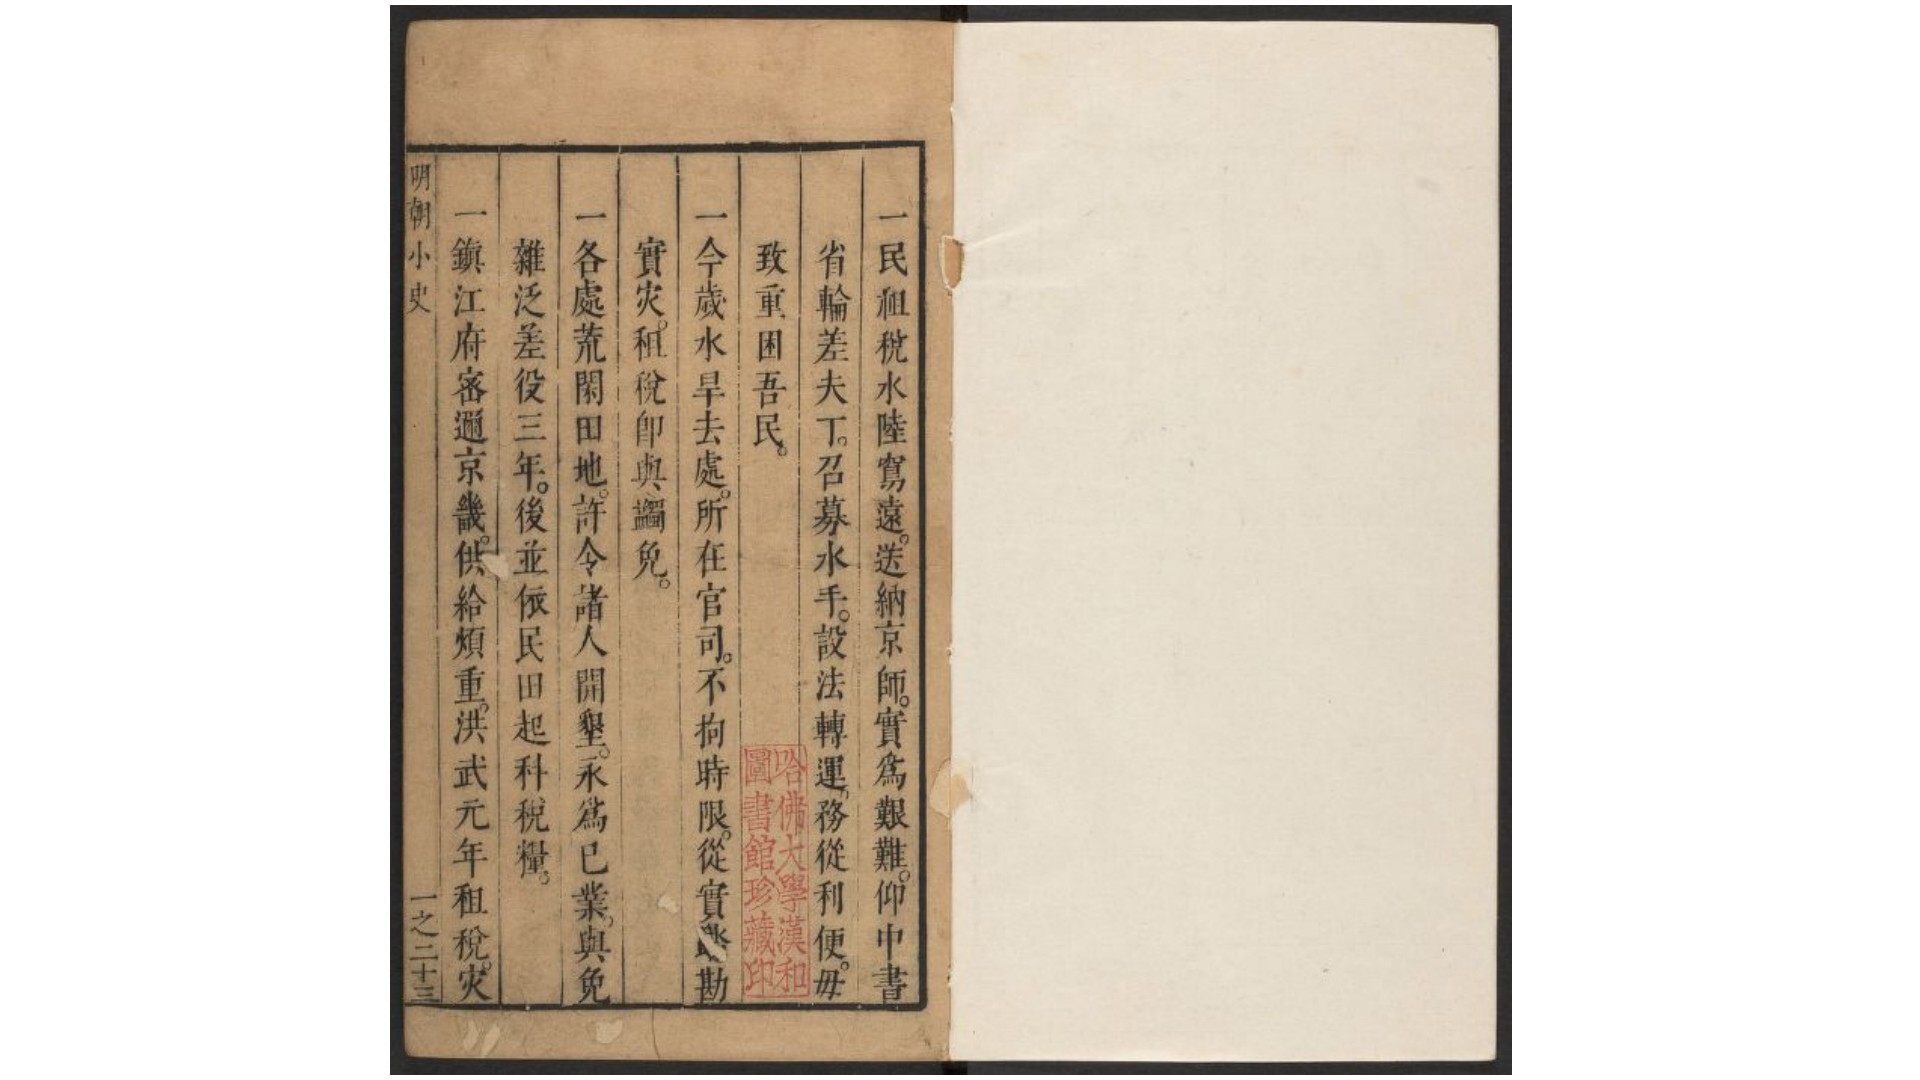 一民租稅水陸窵遠。送納京師。實爲艱難。仰中書
省輪差夫丁。召募水手。設法轉運。務從利便。毋
致重困吾民。
一今歲水旱去處。所在官司。不拘時限。從實踏勘
實灾。租稅卽與蠲免。
一各處荒閑田地。許令諸人開墾。永爲已業。與免
雜泛差役三年。後並依民田起科稅糧。
一鎭江府密邇京畿。供給煩重。洪武元年租稅。灾
明朝小史
一之二十三
哈佛大學漢和
圖書館珍藏印